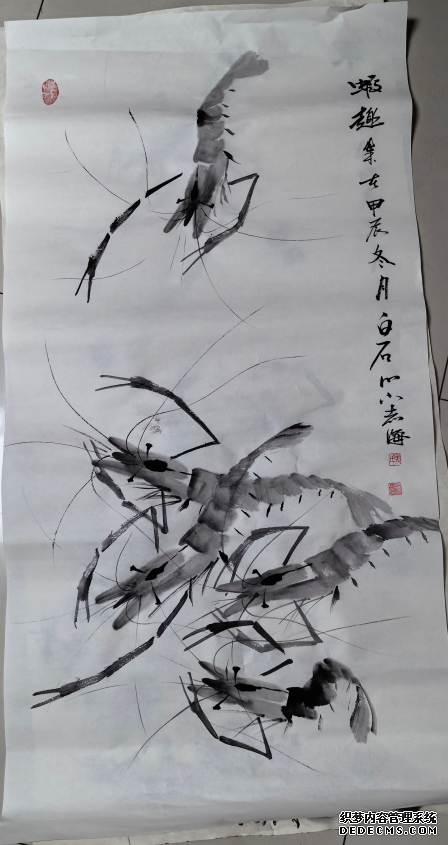 蝦趣甲辰冬月白石门志海
织梦内容管理系统
DEDECMS.COM